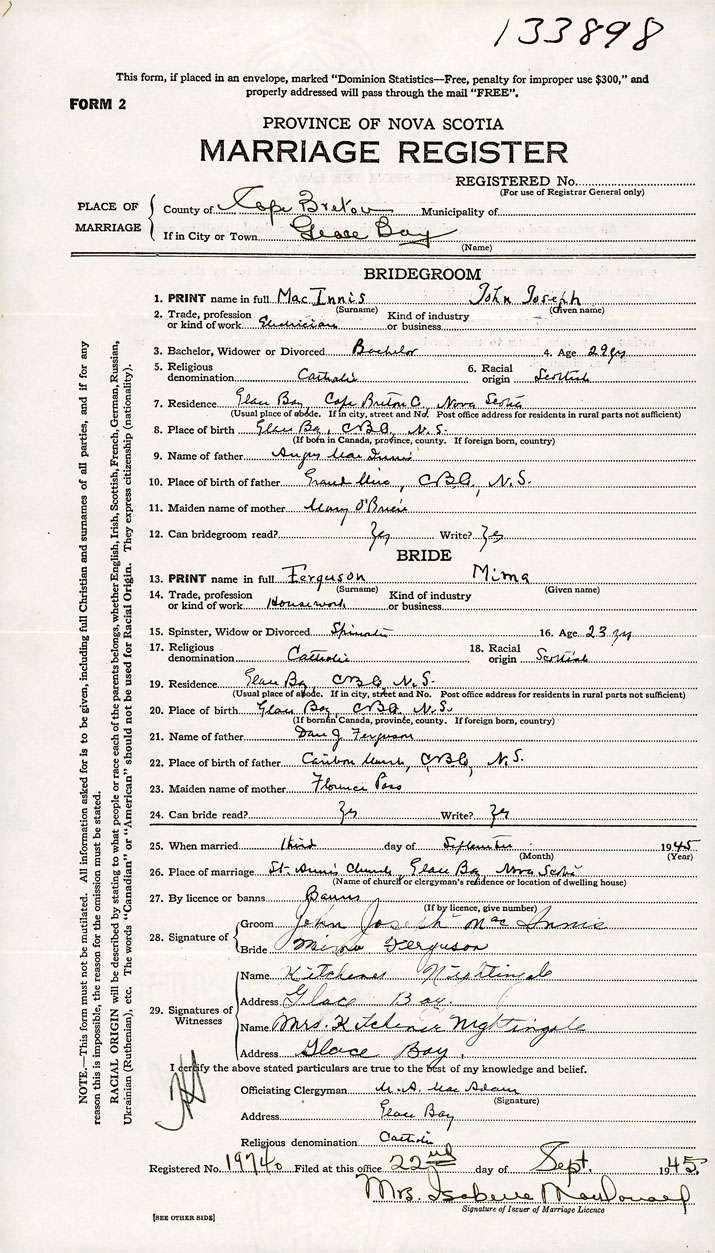 133898
This form, if placed in an envelope, marked "Dominion Statistics—Free, penalty for improper use $300," and
properly addressed will pass through the mail "FREE".
FORM 2
PROVINCE OF NOVA SCOTIA
MARRIAGE REGISTER
REGISTERED No.
(For use of Registrar General only)
PLACE OF MARRIAGE
County of Cape Breton Municipality of
If in City or Town Glace Bay
(Name)
BRIDEGROOM
1. PRINT name in full MacInnis John Joseph
(Surname) (Given name)
2. Trade, profession or kind of work Electrician Kind of industry or business
3. Bachelor, Widower or Divorced Bachelor 4. Age 29 yrs
5. Religious denomination Catholic 6. Racial origin Scottish
7. Residence Glace Bay Cape Breton C. Nova Scotia
(Usual place of abode. If in city, street and No. Post office address for residents in rural parts not sufficient)
8. Place of birth Glace Bay, C.B.C., N.S.
(If born in Canada, province, county. If foreign born, country)
9. Name of father Angus MacInnis
10. Place of birth of father Grand Mira, C.B.C., N.S.
11. Maiden name of mother Mary O'Brien
12. Can bridegroom read? Yes Write? Yes
BRIDE
13. PRINT name in full Ferguson Mima
(Surname) (Given name)
14. Trade, profession or kind of work Housework Kind of industry or business
15. Spinster, Widow or Divorced Spinster 16. Age 23 yrs
17. Religious denomination Catholic 18. Racial origin Scottish
19. Residence Glace Bay C.B.C, N.S.
(Usual place of abode. If in city, street and No. Post office address for residents in rural parts not sufficient)
20. Place of birth Glace Bay, C.B.C. N.S.
(If born in Canada, province, county. If foreign born, country)
21. Name of father Dan J. Ferguson
22. Place of birth of father Caribou Marsh, C.B.C., N.S.
23. Maiden name of mother Florence
24. Can bride read? Yes Write? Yes
25. When married third day of September 1945
(Month) (Year)
26. Place of marriage St. Ann's Church, Glace Bay, Nova Scotia
(Name of church or clergyman's residence or location of dwelling house)
27. By licence or banns Banns
(If by licence, give number)
28. Signature of
Groom John Joseph MacInnis
Bride Mima Ferguson
29. Signatures of Witnesses
Name Kitchener Nightingale
Address Glace Bay.
Name Mrs. Kitchener Nightingale
Address Glace Bay.
I certify the above stated particulars are true to the best of my knowledge and belief.
Officiating Clergyman M. A. MacAdam
(Signature)
Address Glace Bay
Religious denomination Catholic
Registered No. 19740 Filed at this office 22nd day of Sept. 1945
Mrs. Isabelle MacDonald
Signature of Issuer of Marriage Licence
[SEE OTHER SIDE]
NOTE.—This form must not be mutilated. All information asked for is to be given, including full Christian and surnames of all parties, and if for any
reason this is impossible, the reason for the omission must be stated.
RACIAL ORIGIN will be described by stating to what people or race each of the parents belongs, whether English, Irish, Scottish, French, German, Russian,
Ukrainian (Ruthenian), etc. The words "Canadian" or "American" should not be used for Racial Origin. They express citizenship (nationality).